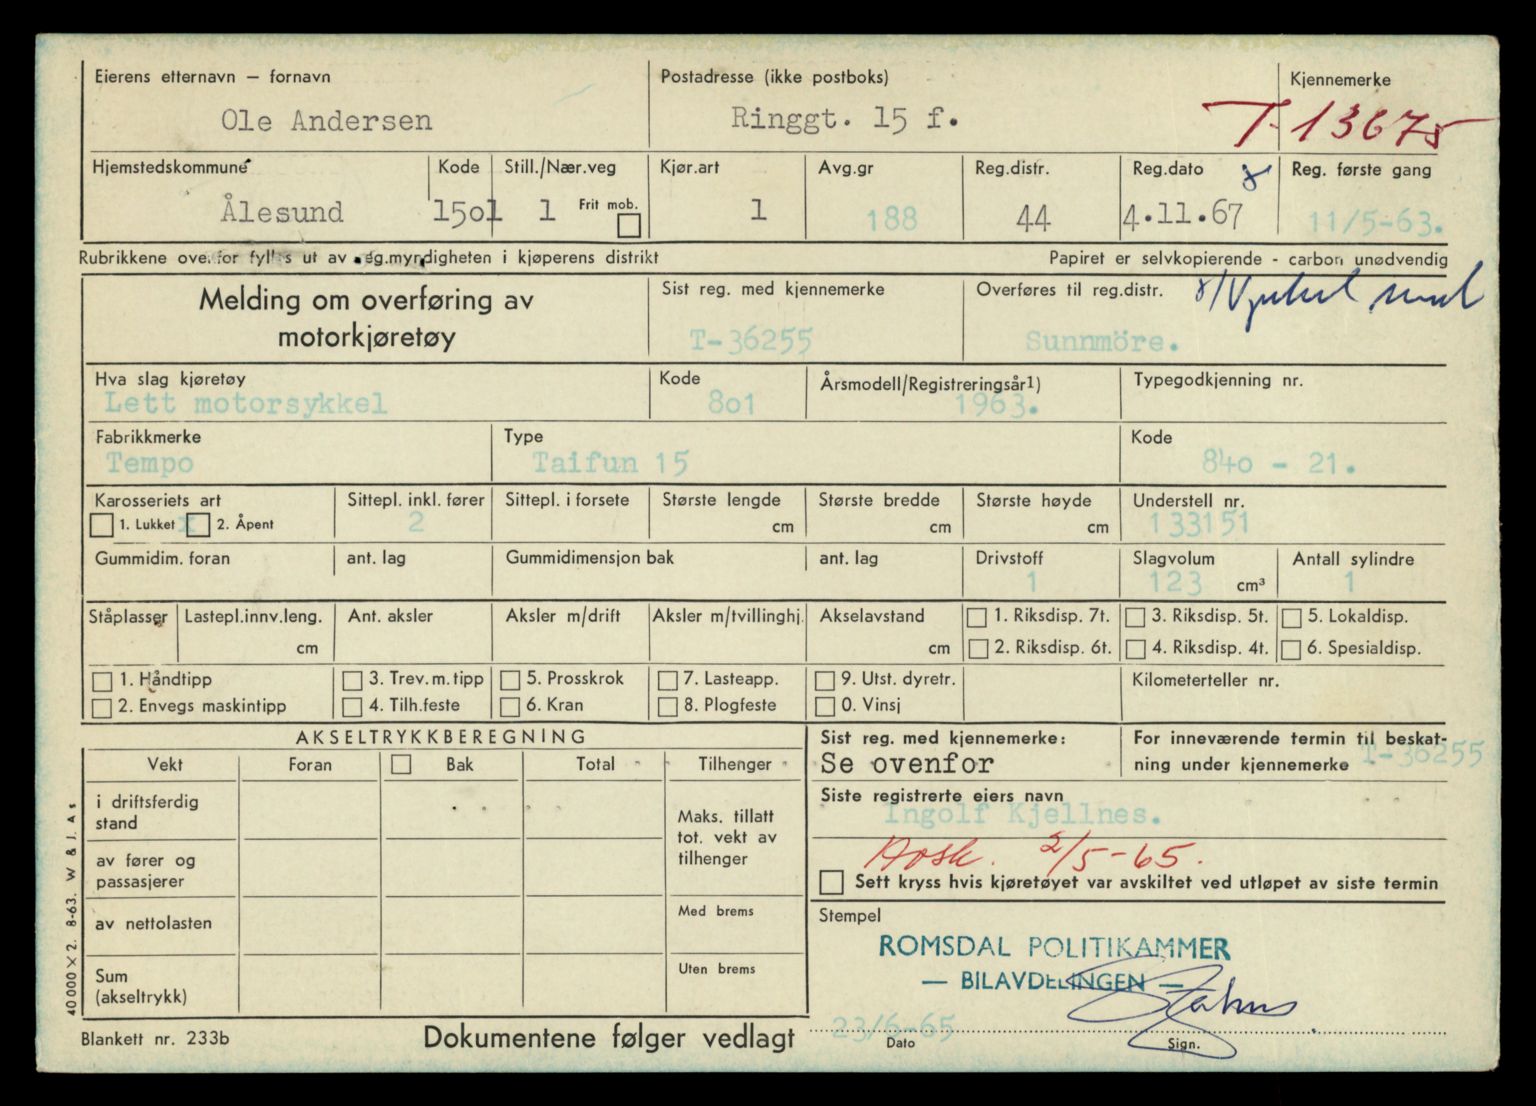 Eierens etternavn – fornavn Postadresse (ikke postboks) Kjennemerke
Ole Andersen Ringgt. 15 f. T-13675
Hjemstedskommune Kode Still./Nær.veg Kjør.art Avg.gr Reg.distr. Reg.dato Reg. første gang
Ålesund 1501 1 Frit mob. 1 188 44 4.11.67 11/5-63.
Rubrikkene ovenfor fylles ut av reg.myndigheten i kjøperens distrikt Papiret er selvkopierende - carbon unødvendig
Melding om overføring av Sist reg. med kjennemerke Overføres til reg.distr.
motorkjøretøy T-36255 Sunnmöre.
Hva slag kjøretøy Kode Årsmodell/Registreringsår1) Typegodkjenning nr.
Lett motorsykkel 8o1 1963.
Fabrikkmerke Type Kode
Tempo Taifun 15 84o - 21.
Karosseriets art Sittepl. inkl. fører Sittepl. i forsete Største lengde Største bredde Største høyde Understell nr.
1. Lukket x 2. Åpent 2 cm cm cm 133151
Gummidim. foran ant. lag Gummidimensjon bak ant. lag Drivstoff Slagvolum Antall sylindre
1 123 cm³ 1
Ståplasser Lastepl.innv.leng. Ant. aksler Aksler m/drift Aksler m/tvillinghj. Akselavstand 1. Riksdisp. 7t. 3. Riksdisp. 5t. 5. Lokaldisp.
cm cm 2. Riksdisp. 6t. 4. Riksdisp. 4t. 6. Spesialdisp.
1. Håndtipp 3. Trev.m.tipp 5. Prosskrok 7. Lasteapp. 9. Utst. dyretr. Kilometerteller nr.
2. Envegs maskintipp 4. Tilh.feste 6. Kran 8. Plogfeste 0. Vinsj
AKSELTRYKKBEREGNING Sist reg. med kjennemerke: For inneværende termin til beskat-
Vekt Foran Bak Total Tilhenger Se ovenfor ning under kjennemerke T-36255
i driftsferdig stand Maks. tillatt tot. vekt av tilhenger Siste registrerte eiers navn
Ingolf Kjellnes.
av fører og passasjerer 2/5-65.
Sett kryss hvis kjøretøyet var avskiltet ved utløpet av siste termin
av nettolasten Med brems Stempel
ROMSDAL POLITIKAMMER
Sum (akseltrykk) Uten brems — BILAVDELINGEN —
23/6-65
Blankett nr. 233b Dokumentene følger vedlagt Dato Sign.
40 000 X 2. 8-63. W & J. A s